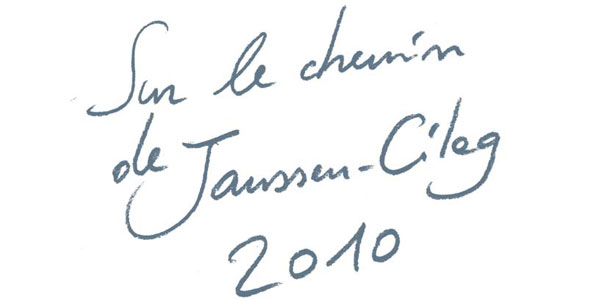 Sur le chemin
de Janssen-Cilag
2010